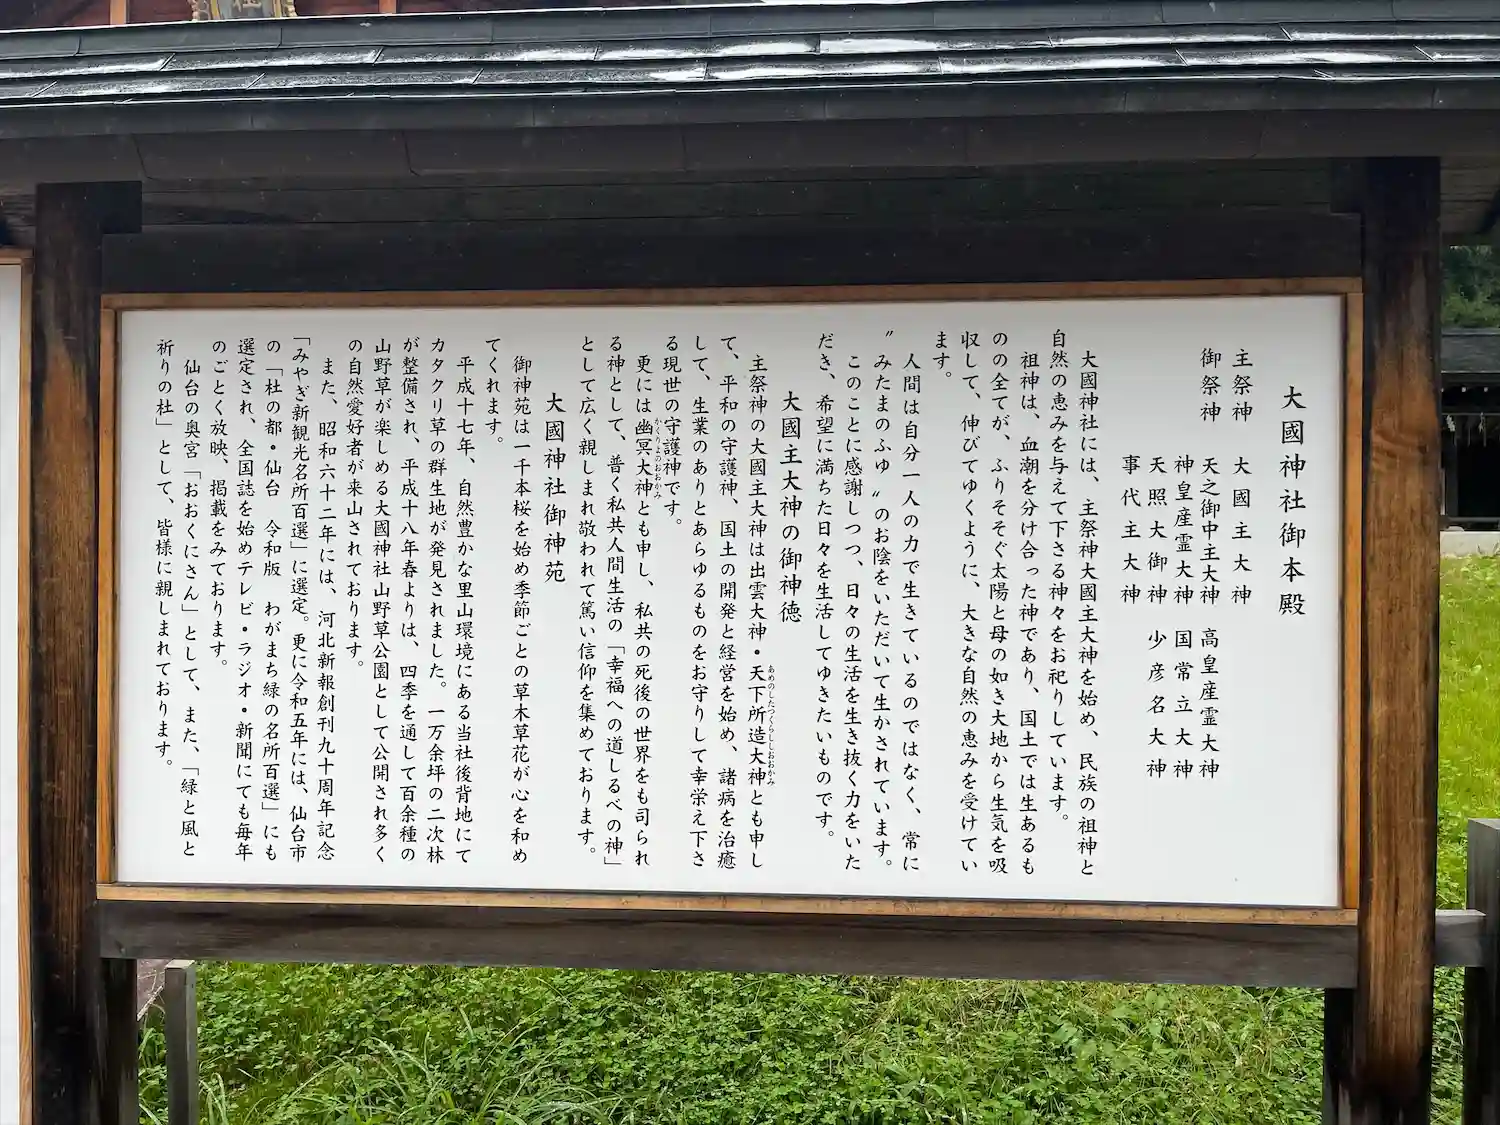 大國神社御本殿
主祭神　大國主大神
御祭神　天之御中主大神　高皇産霊大神
神皇産霊大神　国常立大神
天照大御神　少彦名大神
事代主大神
大國神社には、主祭神大國主大神を始め、民族の祖神と
自然の恵みを与えて下さる神々をお祀りしています。
祖神は、血潮を分け合った神であり、国土では生あるも
のの全てが、ふりそそぐ太陽と母の如き大地から生気を吸
収して、伸びてゆくように、大きな自然の恵みを受けてい
ます。
人間は自分一人の力で生きているのではなく、常に
〝みたまのふゆ〟のお陰をいただいて生かされています。
このことに感謝しつつ、日々の生活を生き抜く力をいた
だき、希望に満ちた日々を生活してゆきたいものです。
大國主大神の御神徳
主祭神の大國主大神は出雲大神・天下所造大神とも申し
あめのしたつくらししおおかみ
て、平和の守護神、国土の開発と経営を始め、諸病を治癒
して、生業のありとあらゆるものをお守りして幸栄え下さ
る現世の守護神です。
更には幽冥大神とも申し、私共の死後の世界をも司られ
かくりよのおおかみ
る神として、普く私共人間生活の「幸福への道しるべの神」
として広く親しまれ敬われて篤い信仰を集めております。
大國神社御神苑
御神苑は一千本桜を始め季節ごとの草木草花が心を和め
てくれます。
平成十七年、自然豊かな里山環境にある当社後背地にて
カタクリ草の群生地が発見されました。一万余坪の二次林
が整備され、平成十八年春よりは、四季を通して百余種の
山野草が楽しめる大國神社山野草公園として公開され多く
の自然愛好者が来山されております。
また、昭和六十二年には、河北新報創刊九十周年記念
「みやぎ新観光名所百選」に選定。更に令和五年には、仙台市
の「杜の都・仙台　令和版　わがまち緑の名所百選」にも
選定され、全国誌を始めテレビ・ラジオ・新聞にても毎年
のごとく放映、掲載をみております。
仙台の奥宮「おおくにさん」として、また、「緑と風と
祈りの杜」として、皆様に親しまれております。